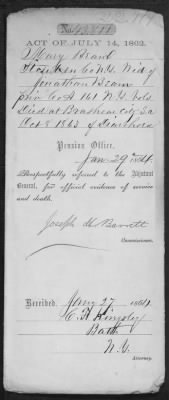 ACT OF JULY 14, 1862.
Mary Beam
Steuben Co N.Y. Wid of
Jonathan Beam
Priv Co A 161 N.Y. Vols
Died at Brashear City La
Oct 8 1863 of Diarrhoea
Pension Office,
Jan 29 1864.
Respectfully referred to the Adjutant
General, for official evidence of service
and death.
Joseph H Barrett
Commissioner.
Received, Jany 27 1864
Bath
N.Y.
Attorney.